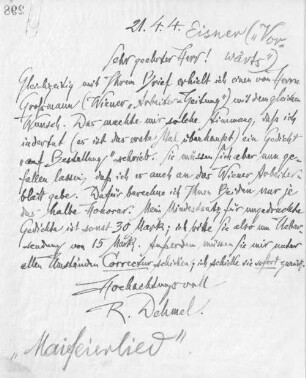 298
21.4.4. Eisner („Vor-
Sehr geehrter Herr! wärts“)
Gleichzeitig mit Ihrem Brief erhielt ich einen von Herrn
Großmann (Wiener „Arbeiter-Zeitung“) mit dem gleichen
Wunsch. Das machte mir solche Stimmung, daß ich
indertat (es ist das erste Mal überhaupt) ein Gedicht
„auf Bestellung“ schrieb. Sie müssen sich aber nun ge-
fallen lassen, daß ich es auch an das Wiener Arbeiter-
blatt gebe. Dafür berechne ich Ihnen Beiden nur je
das halbe Honorar. Mein Mindestsatz für ungedruckte
Gedichte ist sonst 30 Mark; ich bitte Sie also um Ueber-
sendung von 15 Mark. Außerdem müssen Sie mir unter
allen Umständen Correctur schicken; ich schicke sie sofort zurück.
Hochachtungsvoll
R. Dehmel.
„Maifeierlied“